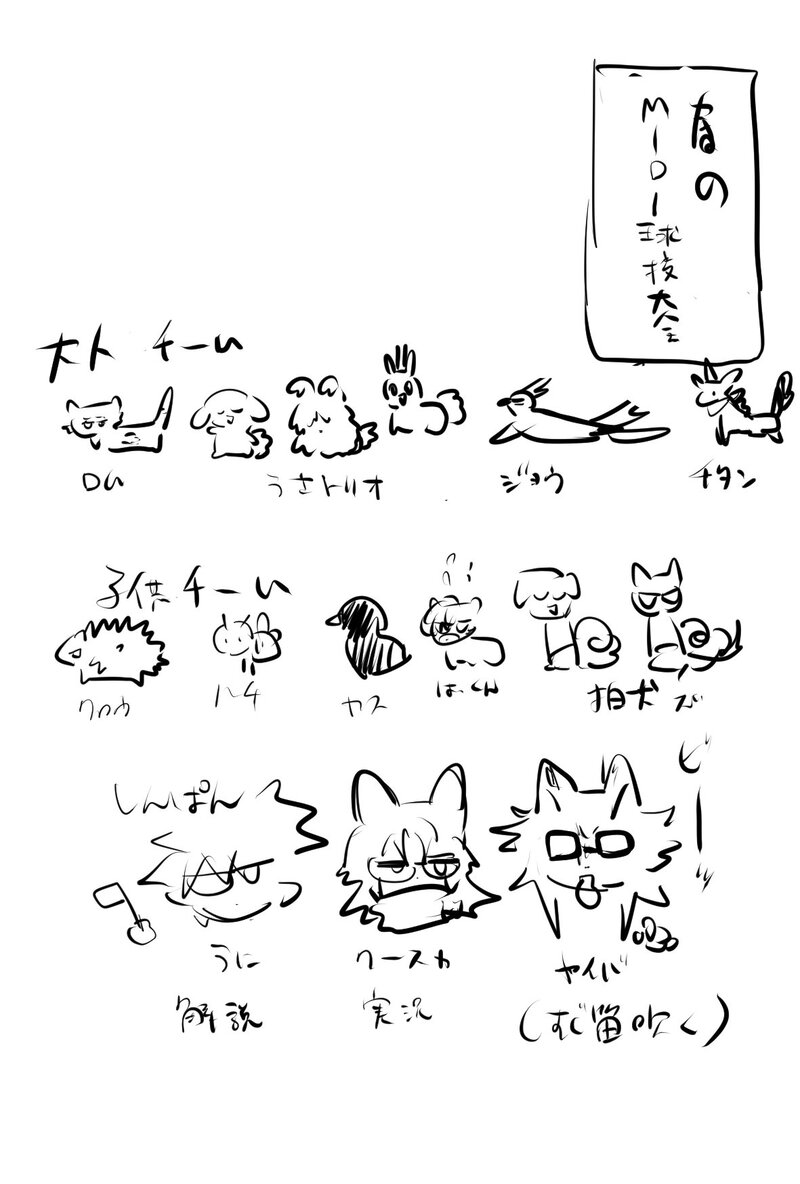 春の
MIDI球技大会
大人チーム
DM
うさトリオ
ジョウ
チタン
子供チーム
クロウ
ハチ
カス
ばくん
狛犬ズ
しんぱん
ピーッ
うに
クースカ
ヤイバ
解説
実況
(すご笛吹く)